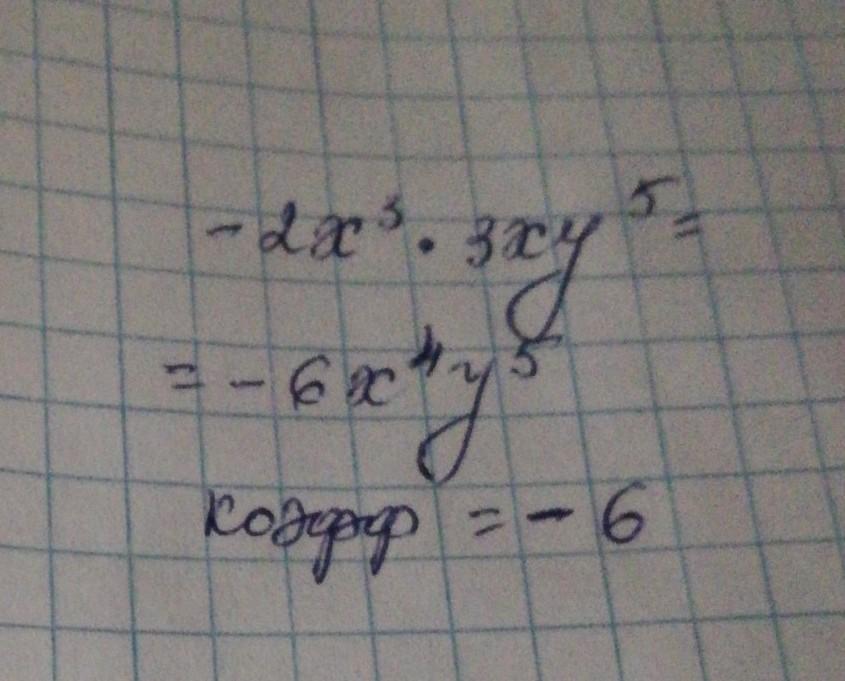 -2x³ · 3xy⁵ =
= -6x⁴y⁵
коэфф = - 6